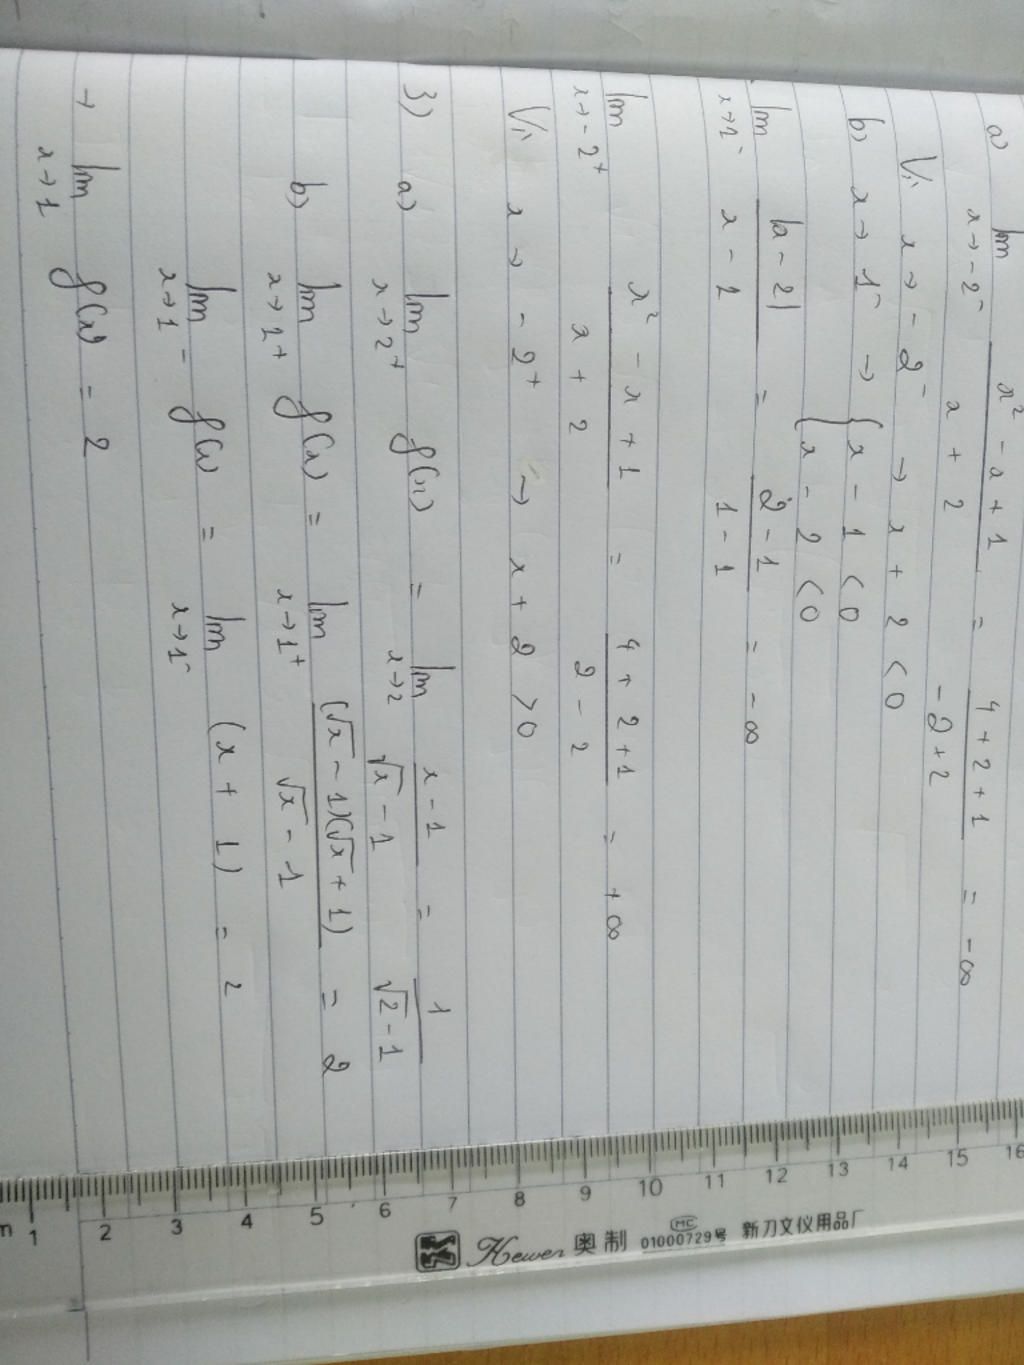 a) lim x→-2⁻ (x² - x + 1)/(x + 2) = (4 + 2 + 1)/(-2 + 2) = -∞
Vì x → -2⁻ → x + 2 < 0
b) x → 1⁻ → { x - 1 < 0
{ x - 2 < 0
lim x→1⁻ |x - 2|/(x - 1) = (2 - 1)/(1 - 1) = -∞
lim x→-2⁺ (x² - x + 1)/(x + 2) = (4 + 2 + 1)/(2 - 2) = +∞
Vì x → -2⁺ → x + 2 > 0
3) a) lim x→2⁺ f(x) = lim x→2 (x - 1)/(√x - 1) = 1/(√2 - 1)
b) lim x→1⁺ f(x) = lim x→1⁺ (√x - 1)(√x + 1)/(√x - 1) = 2
lim x→1⁻ f(x) = lim x→1⁻ (x + 1) = 2
→ lim x→1 f(x) = 2
m 1 2 3 4 5 6 7 8 9 10 11 12 13 14 15 16
Kewen 奥制 MC 01000729号 新刀文仪用品厂